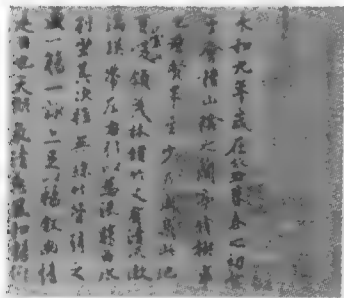 永和九年歲在癸丑暮春之初會
于會稽山陰之蘭亭脩禊事
也群賢畢至少長咸集此地
有崇山峻領茂林脩竹又有清流激
湍映帶左右引以為流觴曲水
列坐其次雖無絲竹管弦之
盛一觴一詠亦足以暢敘幽情
是日也天朗氣清惠風和暢仰